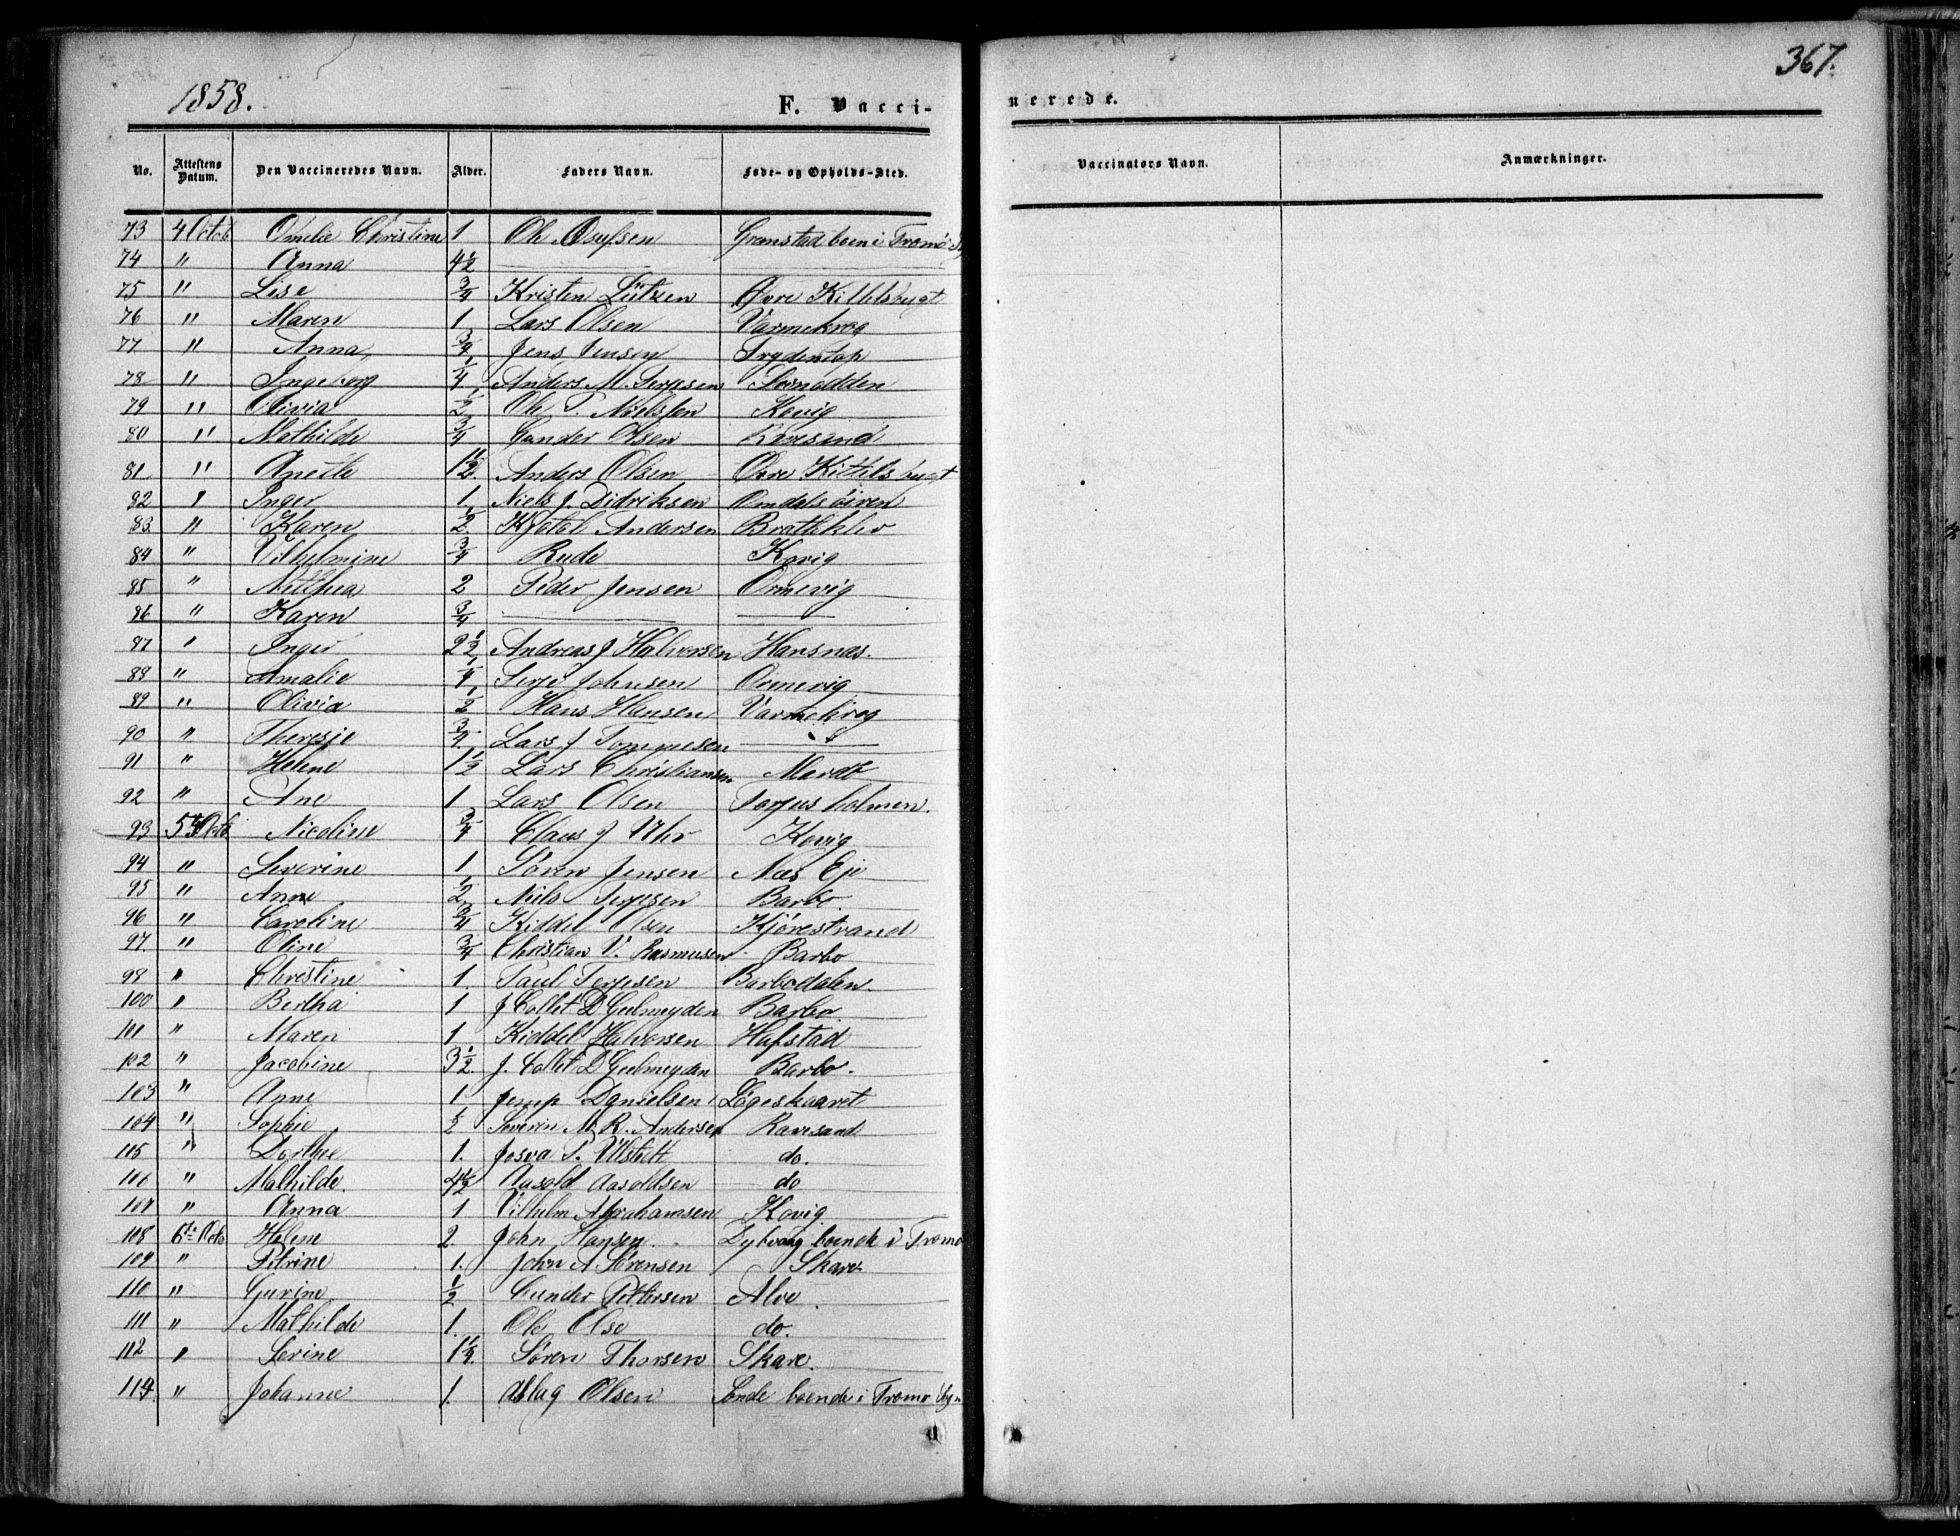 367.
1858.
F. Vacci-
nerede.
No. Attestens Datum. Den Vaccineredes Navn. Alder. Faders Navn. Føde- og Opholds-Sted. Vaccinators Navn. Anmærkninger.
73 4 Octob Christine 1 Ole
74 " Anna 4½ —
75 " Lise ¾ Kristen Lützen Øvre Kittelsbugt
76 " Maren 1 Lars Olsen Varmekrog
77 " Anna ¾ Jens Jensen
78 " Ingeborg ¼ Anders M. Terjesen
79 " Olivia ½ Ole T. Nielssen Kovig
80 " Mathilde ¾ Gunder Olsen Ravesand
81 " Anette 1½ Anders Olsen Øvre Kittelsbugt
82 " Inger 1 Niels J. Didriksen Omdalsöiren
83. " Karen ½. Kjøtel Andersen Bratteklev
84 " Vilhelmine ¾ Rude Kovig
85 " Mathea 2 Peder Jensen Ormevig
86 " Karen ¾ — —
87 " Inger 2½ Andreas J Halversen Hansnæs.
88 " Amalie ¼ Terje Johnsen Ormevig
89 " Olivia ½ Hans Hansen Varmekrog
90 " Theresie ¾ Lars J Tommesen —
91 " Helene 1½ Lars Christiansen Mardö
92 " Ane 1 Lars Olsen Torjusholmen.
93 5te Octb Nicoline ¾ Claus J Uhr Kovig
94 " Severine 1 Søren Jensen Næs Eje
95 " Anne ½ Niels Terjesen Barbo.
96 " Caroline ¾ Kiddel Olsen Kjørestrand
97. " Oline ¾ Christian V. Rasmusen Barbo
98 " Christine 1. Paul Terjesen Barbodalen.
100 " Bertha 1 J Collet D Geelmeyden Barbo.
101 " Maren 1 Kiddel Halvorsen Hafstad
102 " Jacobine 3½. J. Collet D Geelmeyden Barbo.
103 " Anne 1 Danielsen
104 " Sophie ½ Severin M. R. Andersen Ravesand
105 " Dorthee 1. Josva P. Ulstedt do.
106 " Mathilde. 4½ Aasold Aasoldsen do
107 " Anna 1 Vilhelm Abrahamsen Kovig.
108 6te Octb Helene 2. John Hansen. Dybvaag boende i Tromø
109 " Petrine 1. John A Sörensen Skare
110 " Gurine. ½ Gunder Pettersen Alve.
111 " Mathilde 1. Ole Olse do.
112 " Serine 1¼. Sören Thorsen Skare.
114 " Johanne 1. Aslag Olsen boende i Tromø Sogn